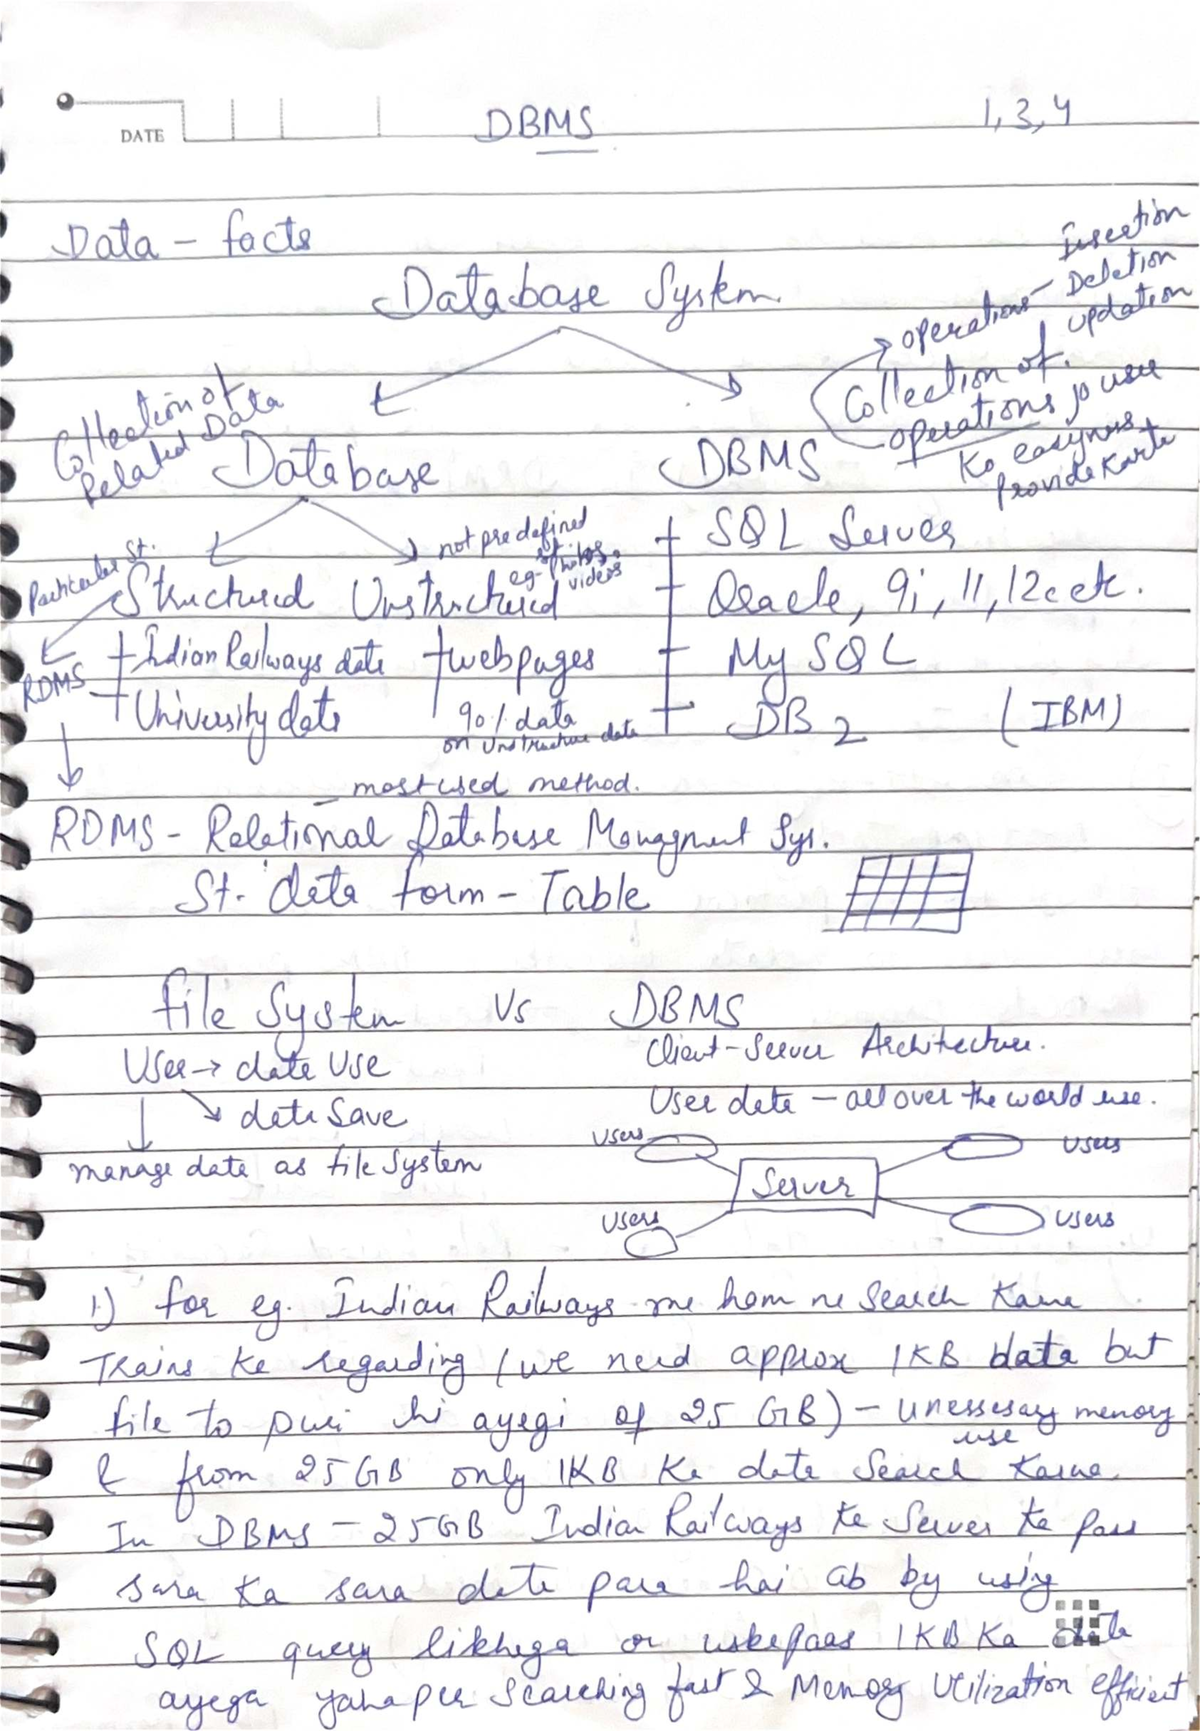 DATE
DBMS
1, 3, 4
Data - facts
Database System
Collection of
Related Data
Database
DBMS
operations - Insertion
Deletion
updation
Collection of
operations jo user
Ko easyness
provide karte
Particular St.
Structured
not predefined
st.
eg- photos,
videos
Unstructured
RDMS
Indian Railways data
University data
webpages
90% data
on Unstructure data
SQL Server
Oracle, 9i, 11, 12c etc.
My SQL
DB2 (IBM)
- most used method.
RDMS - Relational Database Managment Sys.
St. data form - Table
file System Vs DBMS
User → data Use
data Save
manage data as file System
Client-Server Architecture.
User data - all over the world use.
Users
Users
Server
Users
Users
1.) for eg. Indian Railways me hom ne Search Karne
Trains ke regarding (we need approx 1KB data but
file to puri hi ayegi of 25 GB) - unessesary memory
use
& from 25GB only 1KB Ka data Search Karna.
In DBMS - 25GB Indian Railways ke Server ke pass
sara Ka sara data para hai ab by using
SQL query likhega or uskepaas 1KB Ka data
ayega yahaper Searching fast & Memory Utilization efficient